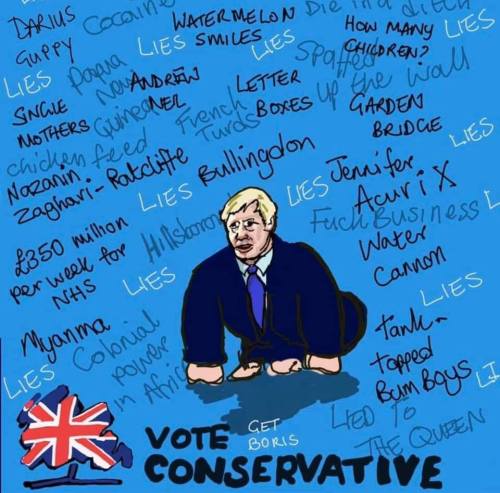 DARIUS GUPPY
Cocaine
WATERMELON SMILES
Die in a ditch
HOW MANY CHILDREN?
LIES
LIES
LIES
LIES
Papua New Guinea
ANDREW NEIL
LETTER BOXES
Spaffed up the wall
SINGLE MOTHERS
French Turds
GARDEN BRIDGE
LIES
chicken feed
Nazanin Zaghari-Ratcliffe
Bullingdon
Jennifer Acuri X
LIES
LIES
LIES
£350 million per week for NHS
Hillsboro
Fuck Business
Water Cannon
LIES
LIES
Myanma
Colonial power in Afric
tank-topped Bum Boys
LIES
LI
LIED TO THE QUEEN
GET BORIS
VOTE
CONSERVATIVE